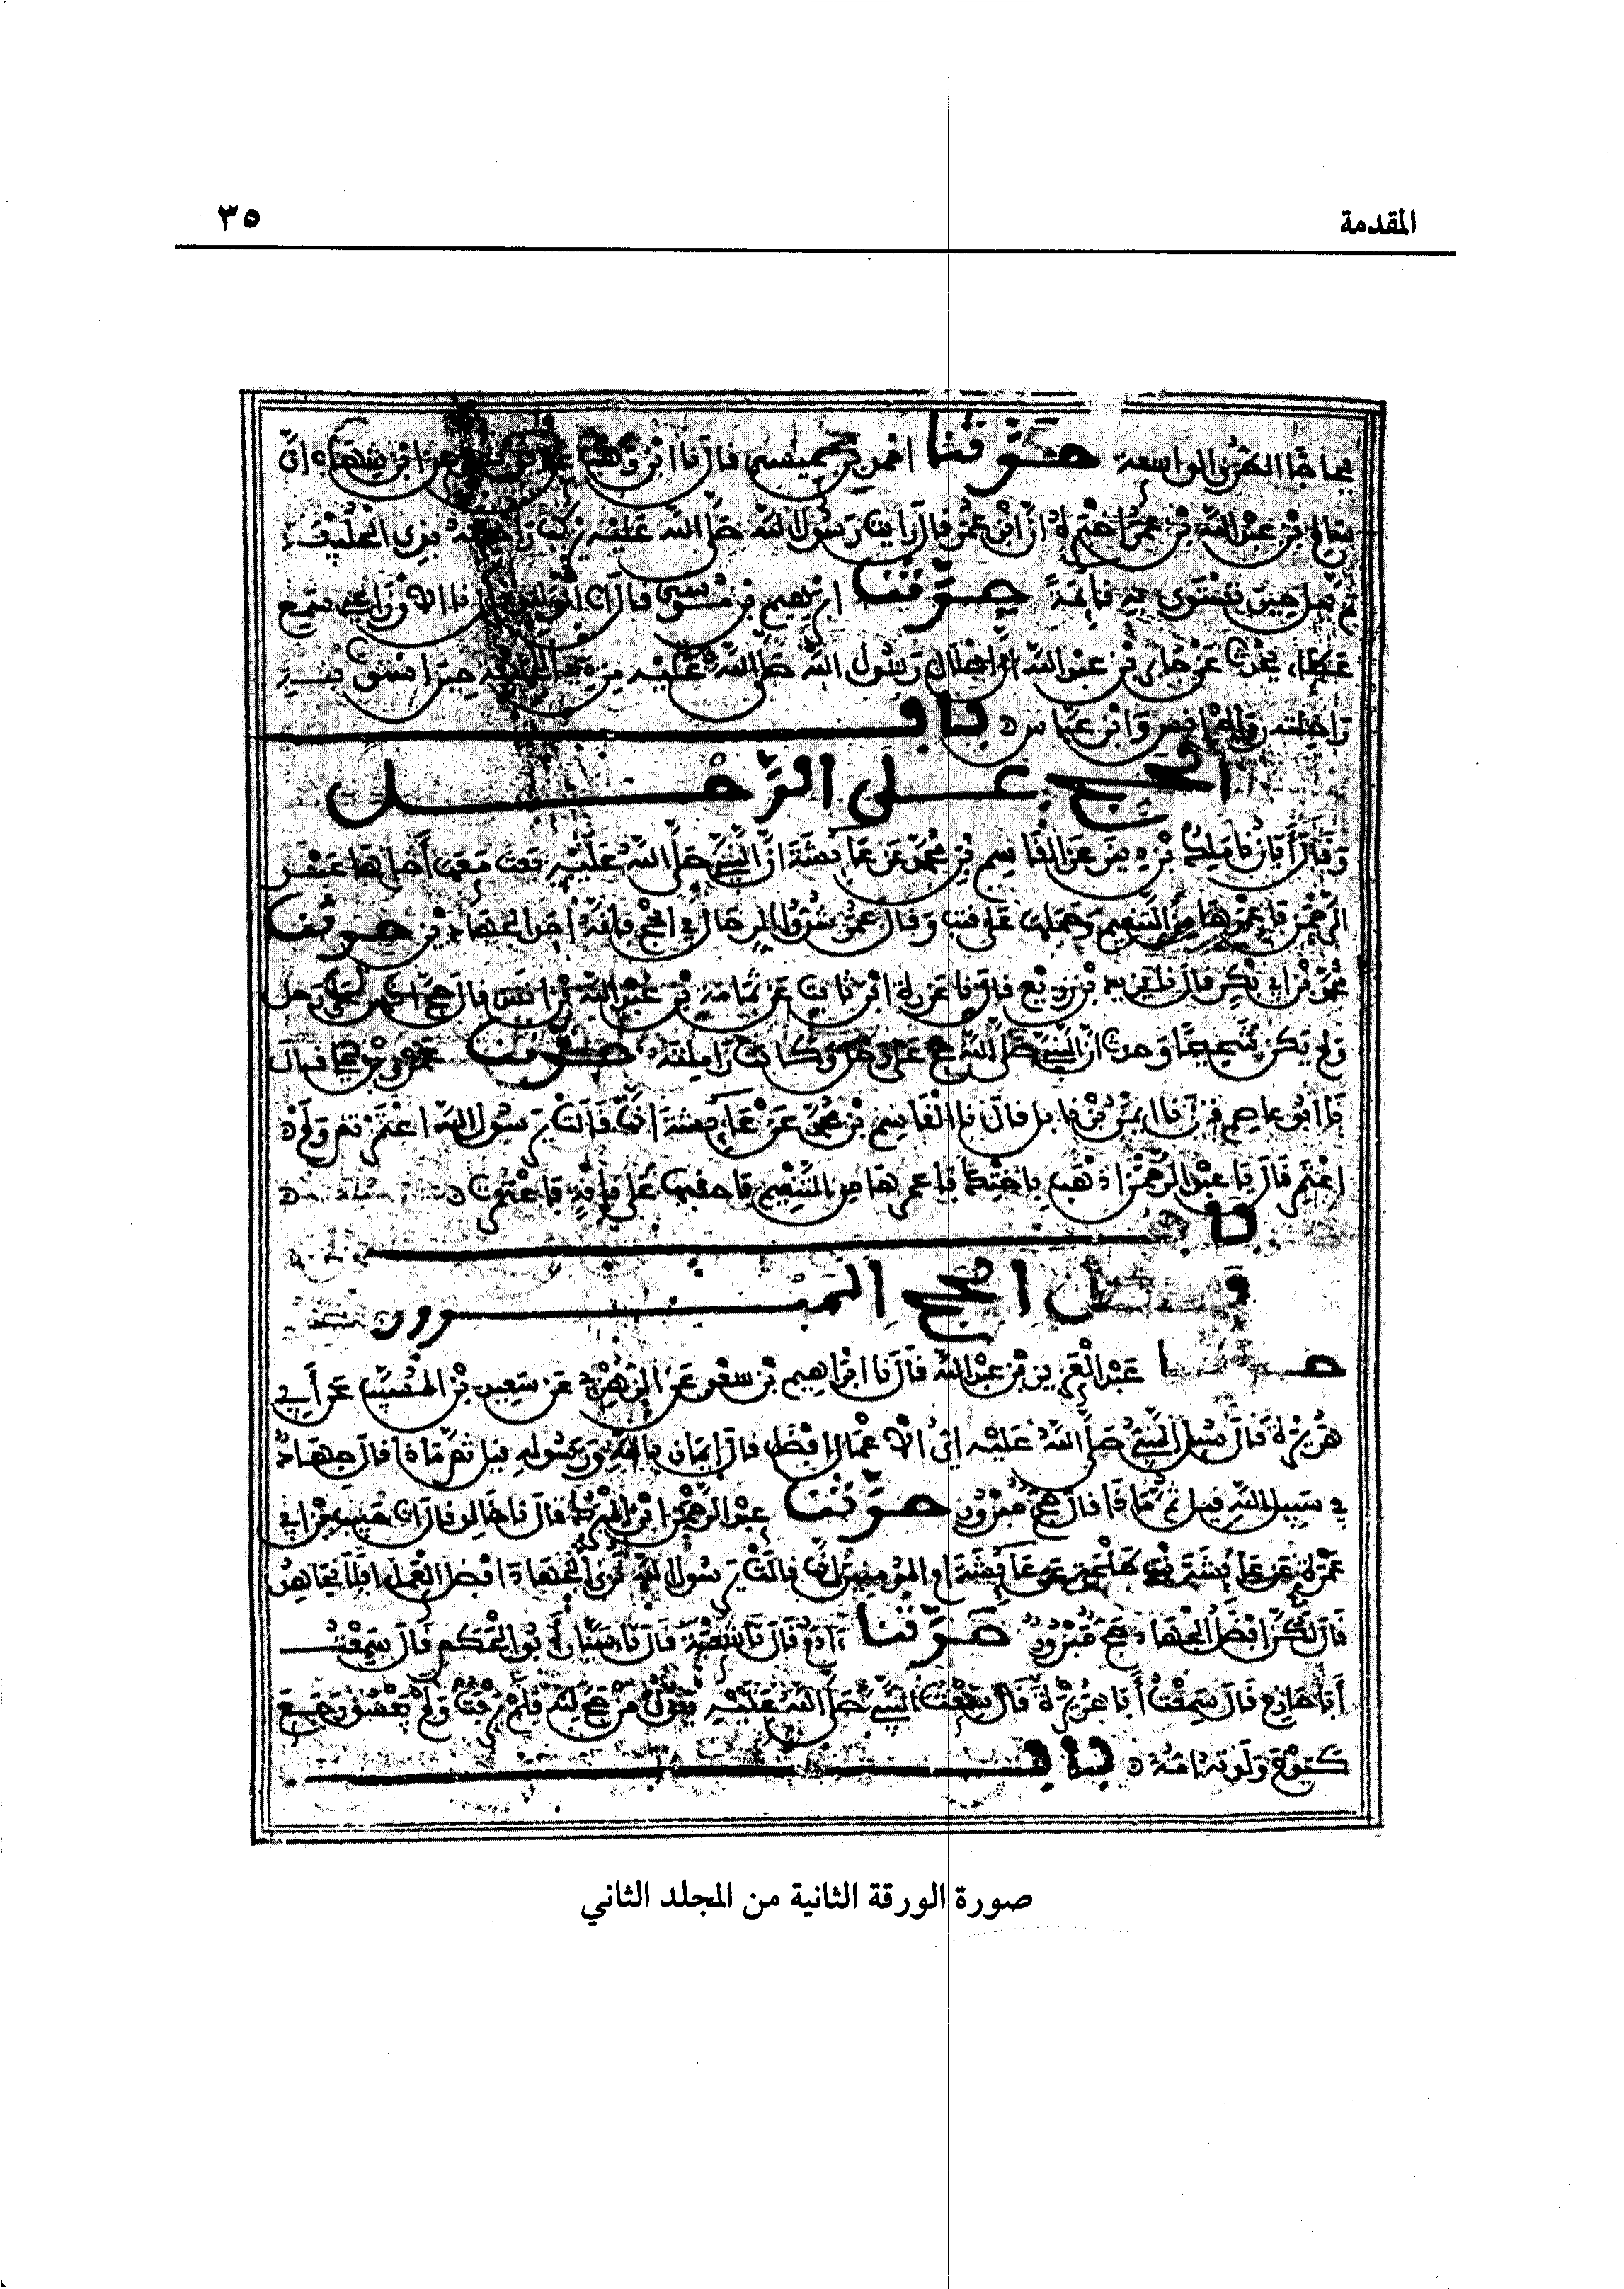 المقدمة
٣٥
فجاجا الطرق الواسعة حدثنا احمد بن عيسى قال نا ابن وهب عن ابن شهاب ان
سالم بن عبد الله بن عمر اخبره ان ابن عمر قال رايت رسول الله صلى الله عليه يركب راحلته بذي الحليفة
ثم يهل حين تستوي به قائمة حدثنا ابرهيم بن موسى قال انا الوليد قال نا الاوزاعي سمع
عطاء يحدث عن جابر بن عبد الله ان اهلال رسول الله صلى الله عليه من ذي الحليفة حين استوت به
راحلته رواه انس وابن عباس باب
الحج على الرحل
وقال أبان نا ملك بن دينر عن القاسم بن محمد عن عايشة ان النبي صلى الله عليه بعث معها أخاها عبد
الرحمن فاعمرها من التنعيم وحملها على قتب وقال عمر شدوا الرحال في الحج فإنه احد الجهادين حدثنا
محمد بن ابي بكر قال نا يزيد بن زريع قال نا عزرة ابن ثابت عن ثمامة بن عبد الله بن انس قال حج انس على رحل
ولم يكن شحيحا وحدث ان النبي صلى الله حج على رحل وكانت زاملته حدثنا عمرو بن علي قال
نا ابو عاصم قال نا ايمن بن نابل قال نا القاسم بن محمد عن عايشة انها قالت يرسول الله اعتمرتم ولم
اعتمر قال يا عبد الرحمن اذهب باختك فاعمرها من التنعيم فاحقبها على ناقة فاعتمرت
باب
فضل الحج المبرور
حدثنا عبد العزيز بن عبد الله قال نا ابراهيم بن سعد عن الزهري عن سعيد بن المسيب عن أبي
هريرة قال سئل النبي صلى الله عليه اي الاعمال افضل قال إيمان بالله ورسوله قيل ثم ماذا قال جهاد
في سبيل الله قيل ثم ماذا قال حج مبرور حدثنا عبد الرحمن ابن المبرك قال نا خالد قال انا حبيب بن ابي
عمرة عن عايشة بنت طلحة عن عايشة ام المومنين انها قالت يرسول الله نرى الجهاد افضل العمل افلا نجاهد
قال لكن افضل الجهاد حج مبرور حدثنا ادم قال نا شعبة قال نا سيار أبو الحكم قال سمعت
أبا حازم قال سمعت أبا هريرة قال سمعت النبي صلى الله عليه يقول من حج لله فلم يرفث ولم يفسق رجع
كيوم ولدته امه باب
صورة الورقة الثانية من المجلد الثاني